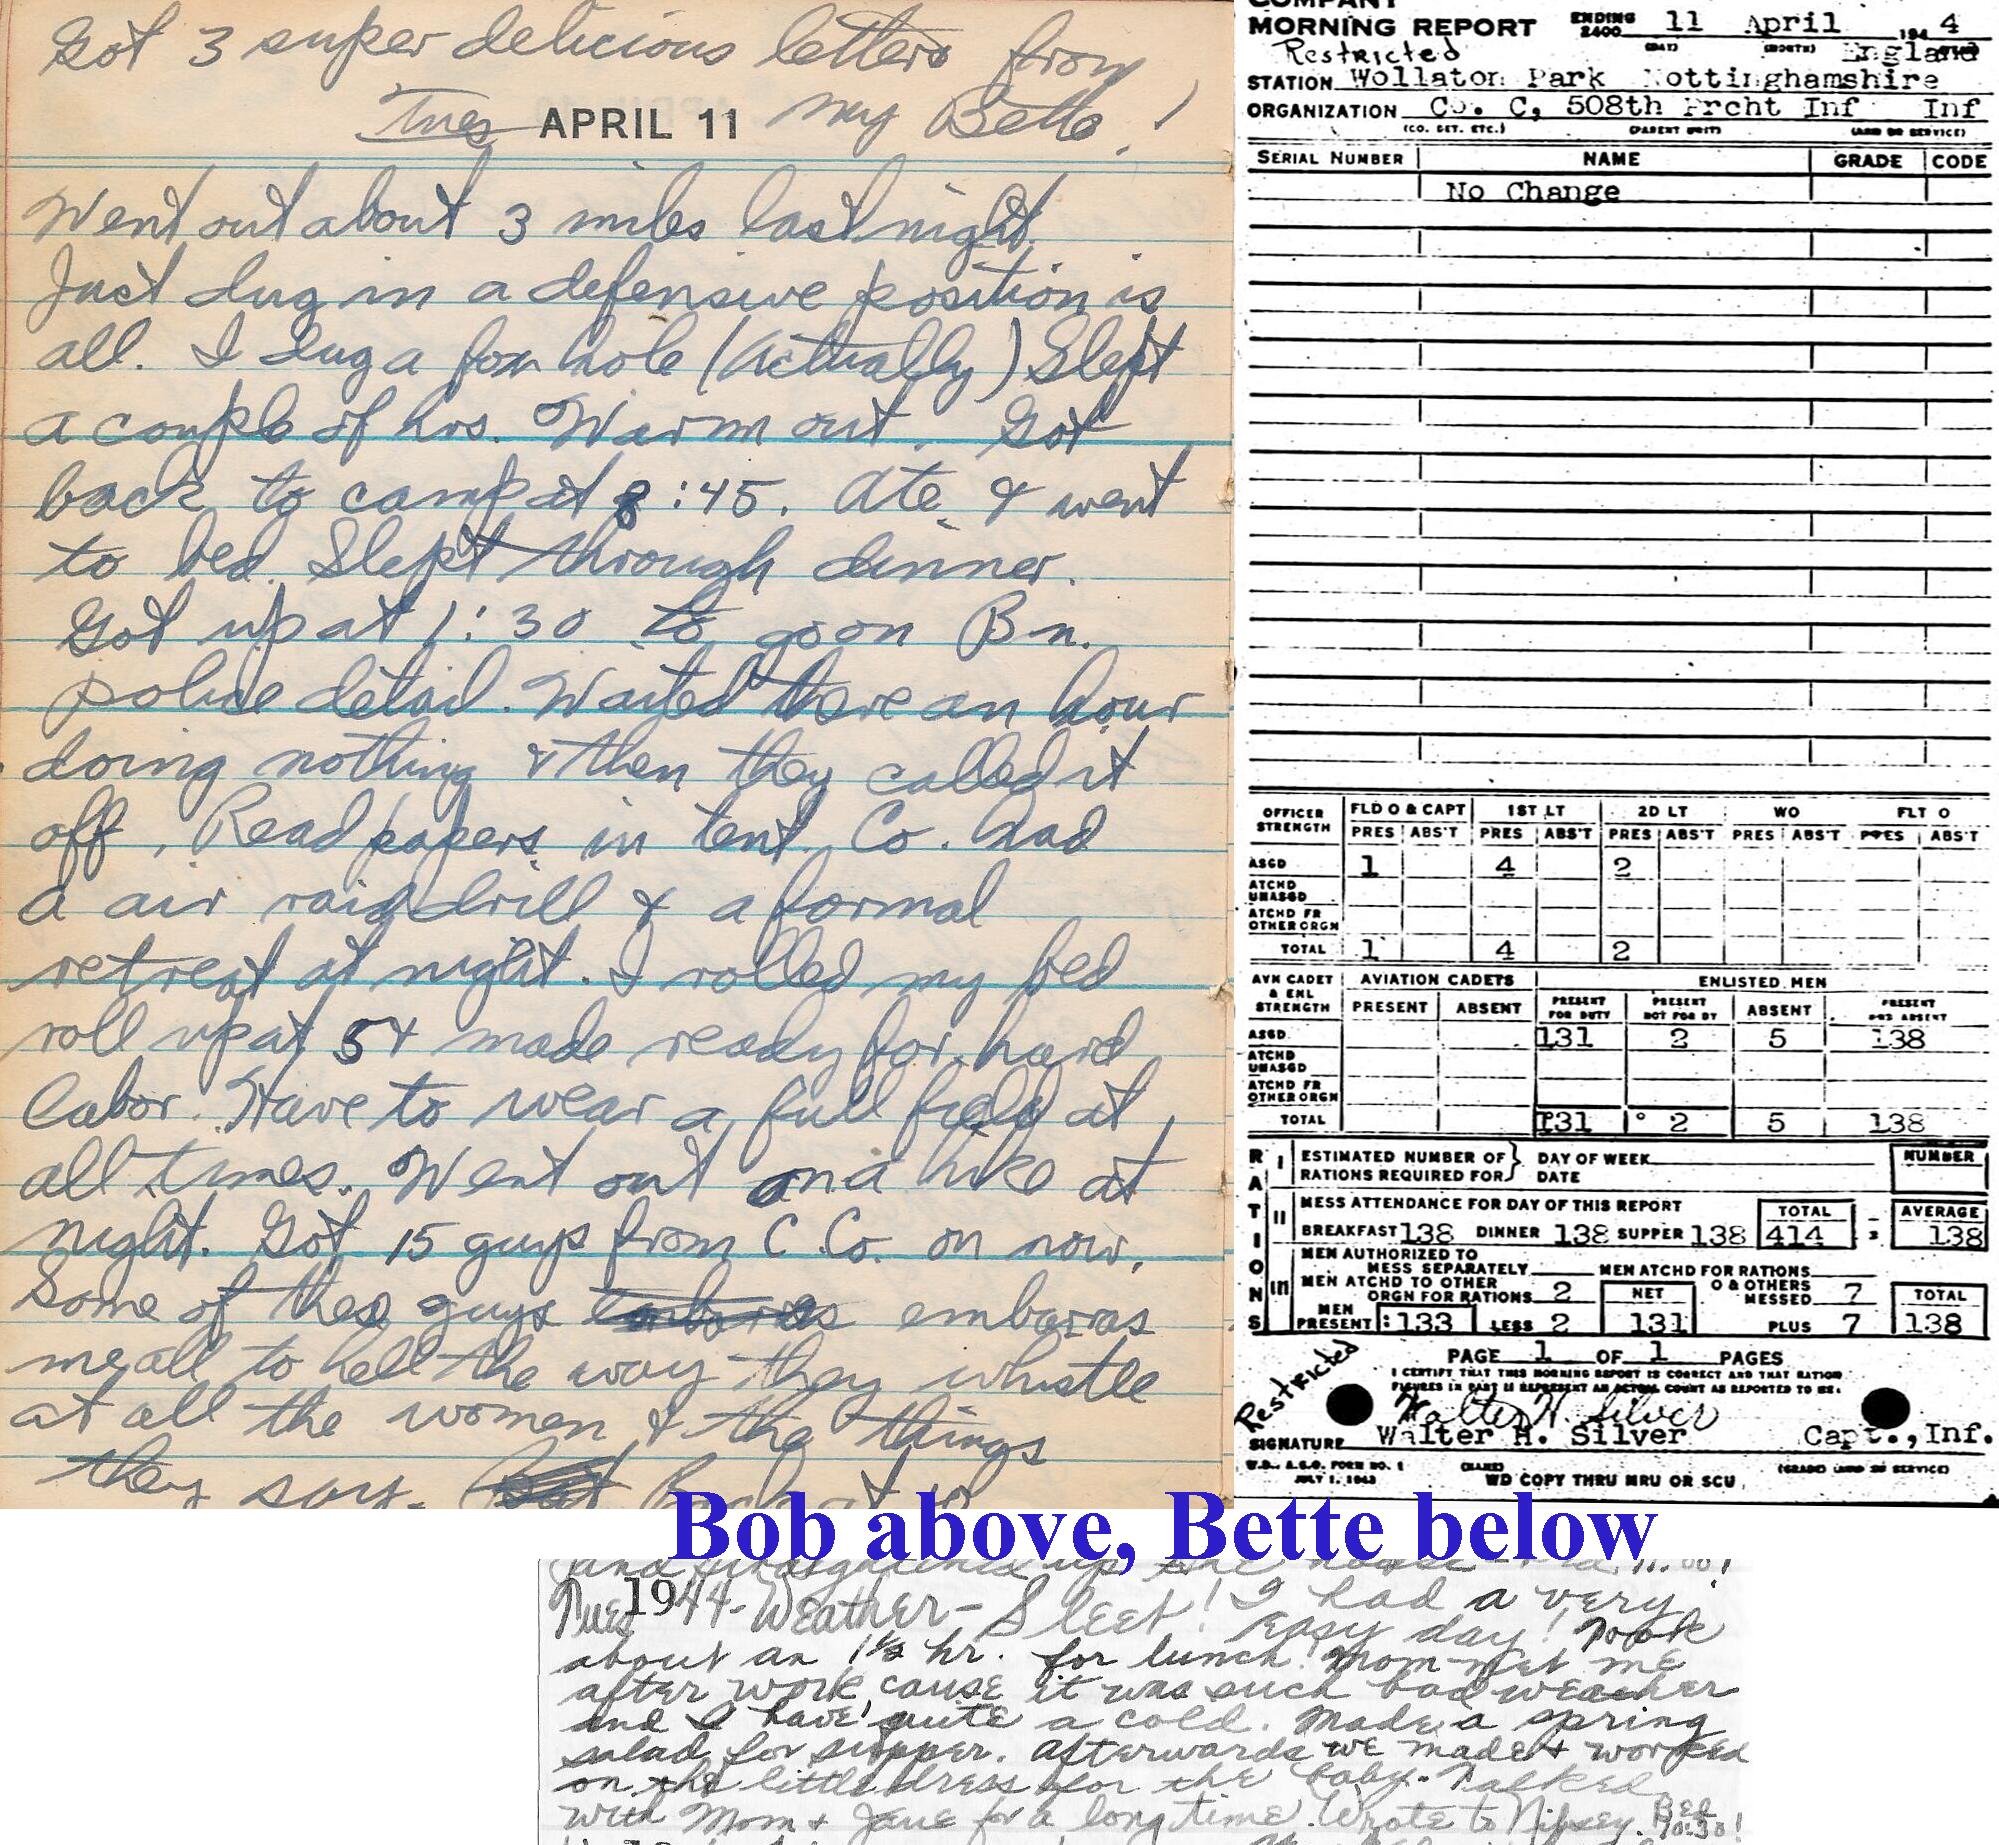 Got 3 super delicious letters from
Tues APRIL 11 my Bette!
Went out about 3 miles last night.
Just dug in a defensive position is
all. I dug a fox hole (Actually) Slept
a couple of hrs. Warm out. Got
back to camp at 8:45. Ate & went
to bed. Slept through dinner.
Got up at 1:30 to go on Bn.
police detail. Waited there an hour
doing nothing & then they called it
off. Read papers in tent. Co. had
a air raid drill & a formal
retreat at night. I rolled my bed
roll up at 5 & made ready for hard
labor. Have to wear a full field at
all times. Went out on a hike at
night. Got 15 guys from C Co. on now.
Some of thes guys embarras
me all to hell the way they whistle
at all the women & the things
they say. Back at 10
COMPANY
MORNING REPORT ENDING 2400 11 April 194 4
(DAY) (MONTH)
Restricted England
STATION Wollaton Park Nottinghamshire
ORGANIZATION Co. C, 508th Prcht Inf Inf
(CO. DET. ETC.) (PARENT UNIT) (ARM OR SERVICE)
SERIAL NUMBER NAME GRADE CODE
No Change
OFFICER STRENGTH FLD O & CAPT 1ST LT 2D LT WO FLT O
PRES ABS'T PRES ABS'T PRES ABS'T PRES ABS'T PRES ABS'T
ASGD 1 4 2
ATCHD UNASGD
ATCHD FR OTHER ORGN
TOTAL 1 4 2
AVN CADET & ENL STRENGTH AVIATION CADETS ENLISTED MEN
PRESENT ABSENT PRESENT FOR DUTY PRESENT NOT FOR DY ABSENT PRESENT AND ABSENT
ASGD 131 2 5 138
ATCHD UNASGD
ATCHD FR OTHER ORGN
TOTAL 131 2 5 138
RATIONS
I ESTIMATED NUMBER OF RATIONS REQUIRED FOR } DAY OF WEEK DATE NUMBER
II MESS ATTENDANCE FOR DAY OF THIS REPORT TOTAL AVERAGE
BREAKFAST 138 DINNER 138 SUPPER 138 414 138
III MEN AUTHORIZED TO MESS SEPARATELY MEN ATCHD FOR RATIONS
MEN ATCHD TO OTHER ORGN FOR RATIONS 2 NET O & OTHERS MESSED 7 TOTAL
MEN PRESENT: 133 LESS 2 131 PLUS 7 138
PAGE 1 OF 1 PAGES
Restricted
I CERTIFY THAT THIS MORNING REPORT IS CORRECT AND THAT RATION
FIGURES IN PART II REPRESENT AN ACTUAL COUNT AS REPORTED TO ME.
Walter H. Silver
SIGNATURE Walter H. Silver Capt., Inf.
W.D., A.G.O. FORM NO. 1 (NAME) (GRADE) (ARM OR SERVICE)
JULY 1, 1943 WD COPY THRU MRU OR SCU
Bob above, Bette below
and straightened up the house
Tues 1944 - Weather - Sleet! I had a very
easy day! Took
about an 1½ hr. for lunch! Mom met me
after work cause it was such bad weather
and I have quite a cold. Made a spring
salad for supper. Afterwards we made & worked
on the little dress for the baby. Talked
with Mom & Jane for a long time. Wrote to Nibsey. Bed 10:30!